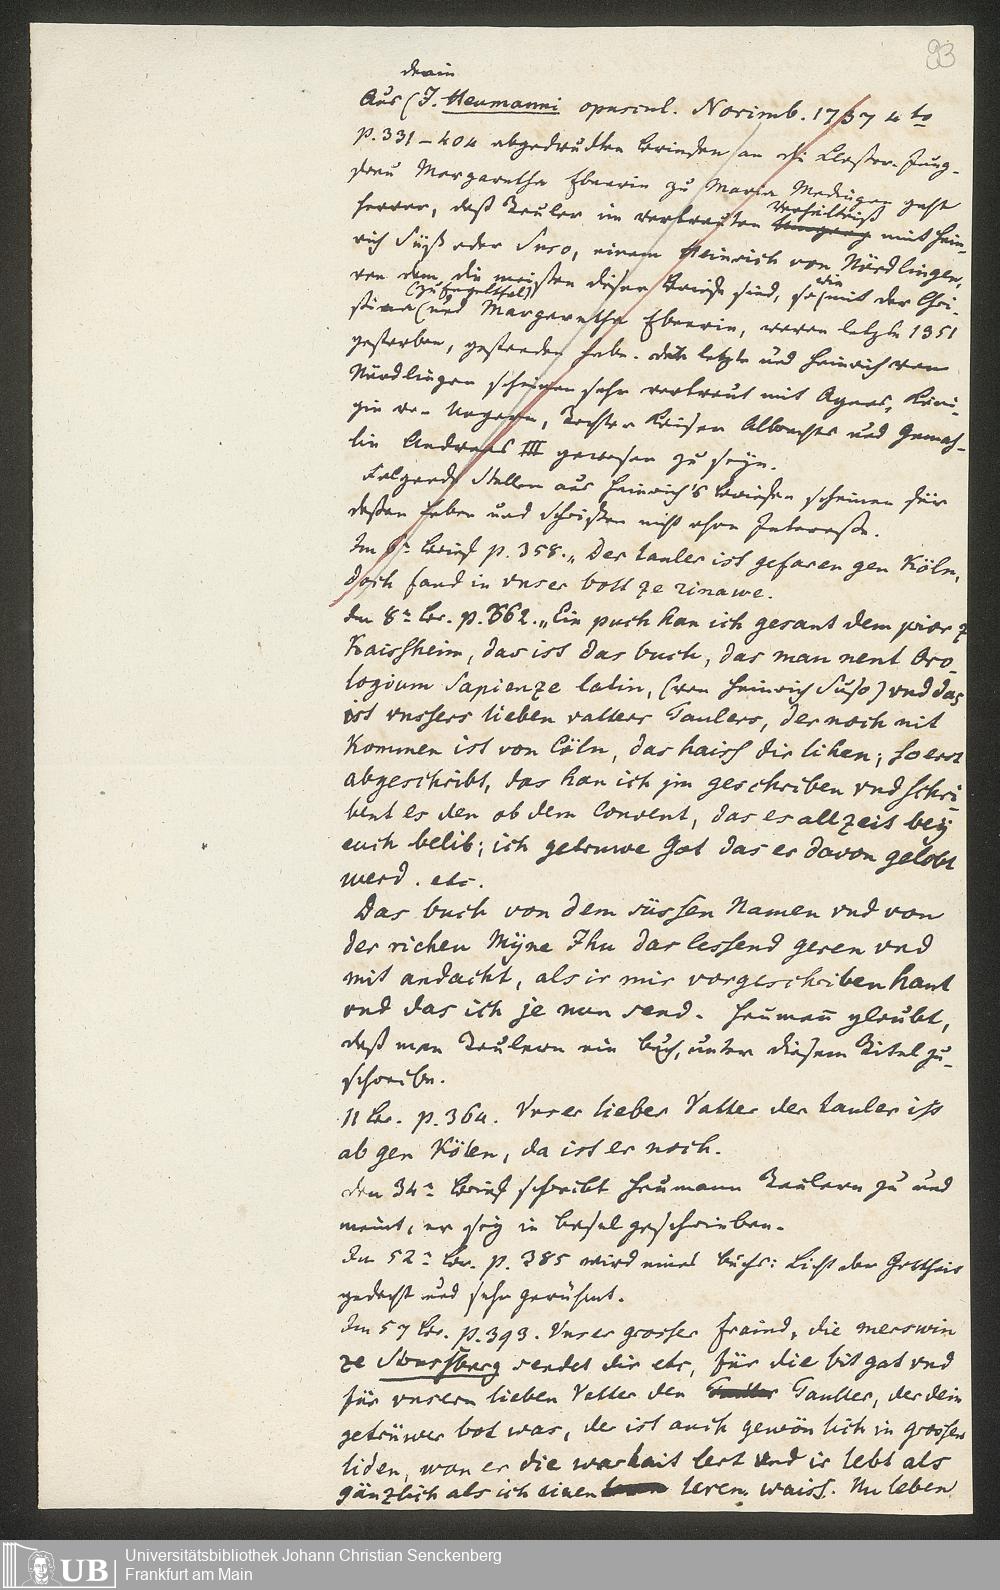 93
darin
Aus (J. Heumanni opuscul. Norimb. 1737 4to
p. 331–404 abgedruckten Briefen an die Closter-Jung-
frau Margaretha Ebnerin zu Maria Medingen geht
Verhältniß
hervor, daß Tauler im vertrauten mit Hein-
rich Süß oder Suso, einem Heinrich von Nördlingen,
von dem die meisten dieser Briefe sind, so mit der Chri-
wie
(zu Engelthal)
stina (und Margaretha Ebnerin, wovon letzte 1351
gestorben, gestanden habe. Die letzte und Heinrich von
Nördlingen scheinen sehr vertraut mit Agnes, Köni-
gin von Ungern, Tochter Kaisers Albrechts und Gemah-
lin Andreas III gewesen zu seyn.
Folgende Stellen aus Heinrich's Briefen scheinen für
dessen Leben und Schriften nicht ohne Interesse.
Im 6n Brief p. 358. „Der tauler ist gefaren gen Köln,
doch fand in unser bott ze rinawe.
Im 8n Br. p. 362. „Ein puch han ich gesant dem prior z
Kaissheim, das ist das buch, das man nent Oro-
logium Sapienze latin, (von Heinrich Suso) vnd das
ist vnssers lieben vatters Taulers, der noch nit
kommen ist von Cöln, das haiss dir lihen; so erst
abgeschribt, das han ich jm geschriben vnd schri-
bent es den ob dem Convent, das es allzeit beÿ
euch belib; ich getruwe Got das er davon gelobt
werd. etc.
Das buch von dem süssen Namen vnd von
der richen Mÿne Jhu das lessend geren vnd
mit andacht, als ir mir vorgeschriben hant
vnd das ich je nun send. Heumann glaubt,
daß man Taulern ein Buch, unter diesem Titel zu-
schreibe.
11 Br. p. 364. Vnser lieber Vatter der tauler ist
ab gen Kölen, da ist er noch.
Den 34n Brief schreibt Heumann Taulern zu und
meint, er sey in Basel geschrieben.
Im 52n Br. p. 385 wird eines Buchs: Licht der Gottheit
gedacht und sehr gerühmt.
Im 57 Br. p. 393. Vnser grosser fraind, die merswin
ze Strassberg sendet dir etc, für die bit gat vnd
für vnsern lieben Vatter den Tauller, der dein
getrüwer bot was, der ist auch gewönlich in grossen
liden, wan er die warhait lert vnd ir lebt als
gänzlich als ich einen leren waiss. Nu leben
UB
Universitätsbibliothek Johann Christian Senckenberg
Frankfurt am Main